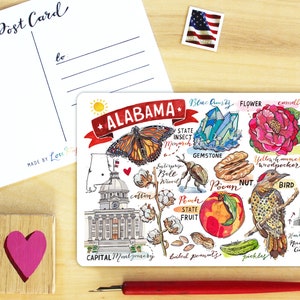 Post Card
to
MADE BY
ALABAMA
STATE
INSECT
Monarch
Blue Quartz
GEMSTONE
FLOWER
camellia
Boll
Weevil
Pecan
NUT
Yellowhammer
woodpecker
BIRD
cotton
Peach
STATE
FRUIT
CAPITAL Montgomery
boiled peanuts
pickles